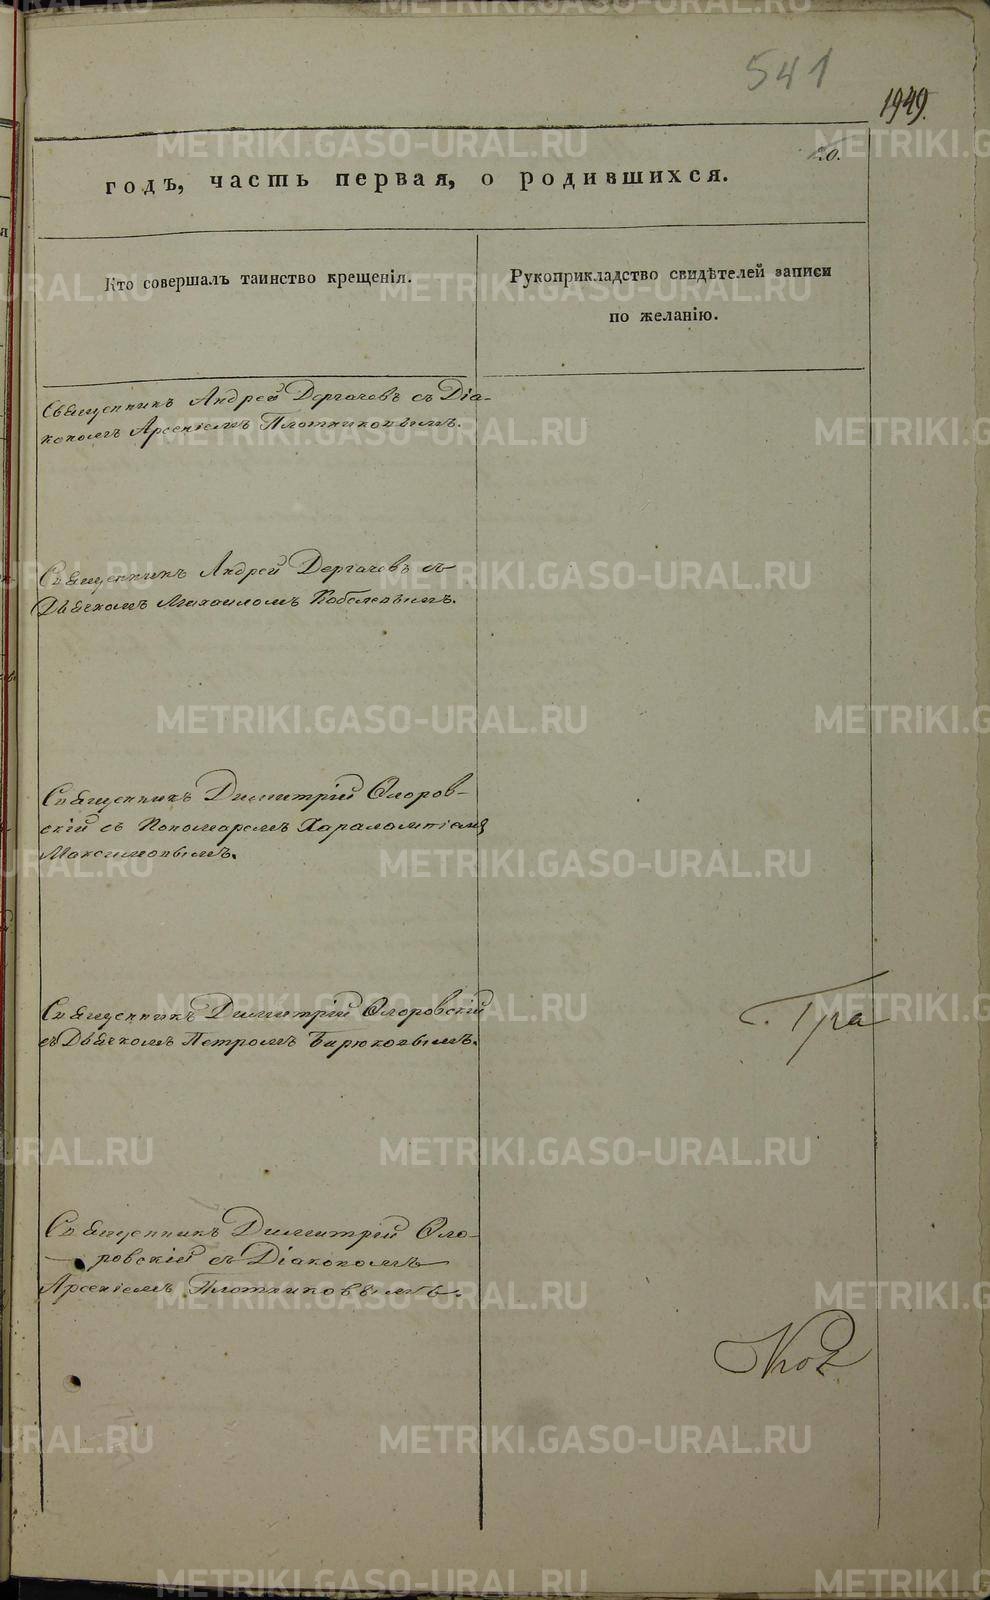 541
1949.
20.
годъ, часть первая, о родившихся.
Кто совершалъ таинство крещенія.
Рукоприкладство свидѣтелей записи
по желанію.
Священникъ Андрей Дергачевъ съ Діа-
кономъ Арсеніемъ Плотниковымъ.
Священникъ Андрей Дергачевъ съ
Дьячкомъ Михаиломъ Кобелевымъ.
Священникъ Димитрій Флоров-
скій съ Пономаремъ Харалампіемъ
Максимовымъ.
Священникъ Димитрій Флоровскій
съ Дьячкомъ Петромъ Бирюковымъ.
Священникъ Димитрій Фло-
ровскій съ Діакономъ
Арсеніемъ Плотниковымъ.
METRIKI.GASO-URAL.RU